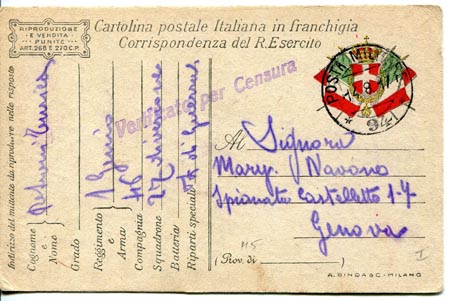 RIPRODUZIONE
E VENDITA
PUNITE
ART. 268 E 270 C.P.
Cartolina postale Italiana in franchigia
Corrispondenza del R. Esercito
Verificato per Censura
POSTA MILITARE
94
Indirizzo del mittente da riprodurre nelle risposte
Cognome e Nome
Grado
Reggimento e Arma 1 Genio
Compagnia 46
Squadrone 27 divisione
Batteria
Riparti speciali di guerra
Al Signora
Mary Navono
Spianata Castelletto
Genova
(Prov. di )
A. BINDA & C. - MILANO